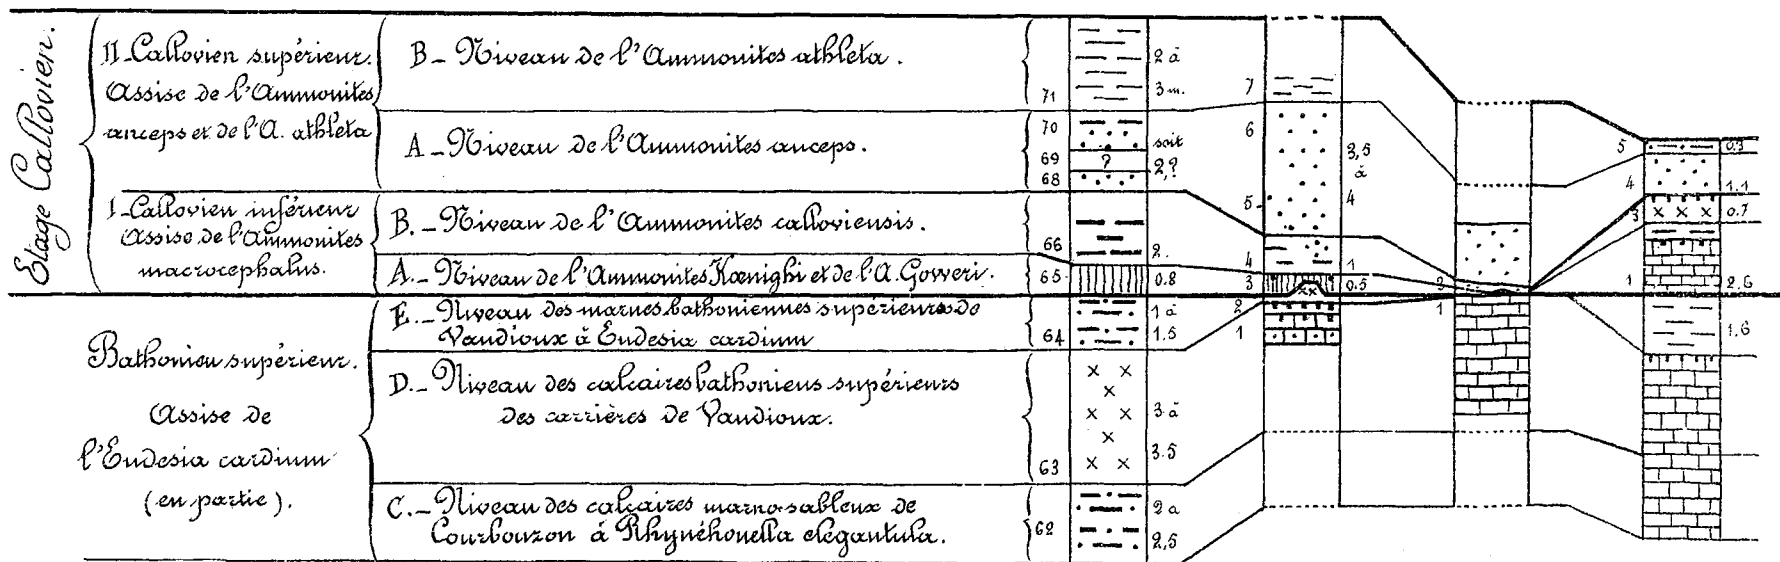 Etage Callovien.
II_Callovien supérieur.
Assise de l'Ammonites
anceps et de l'A. athleta
B_ Niveau de l'Ammonites athleta.
A_Niveau de l'Ammonites anceps.
I_Callovien inférieur
Assise de l'Ammonites
macrocephalus.
B._Niveau de l'Ammonites calloviensis.
A._ Niveau de l'Ammonites Kœnighi et de l'A. Goweri.
Bathonien supérieur.
Assise de
l'Eudesia cardium
(en partie).
E._Niveau des marnes bathoniennes supérieures de
Vaudioux à Eudesia cardium
D._Niveau des calcaires bathoniens supérieurs
des carrières de Vaudioux.
C._Niveau des calcaires marno-sableux de
Courbouzon à Rhynchonella elegantula.
71
2 à
3 m.
70
69
68
?
soit
2,?
66
2.
65
0.8
64
1 à
1.5
63
3 à
3.5
62
2 à
2,5
7
6
5
4
3
2
1
3,5
à
4
1
0.5
xx
3
1
5
4
3
1
0.3
1.1
x x x
0.7
2.6
1.6